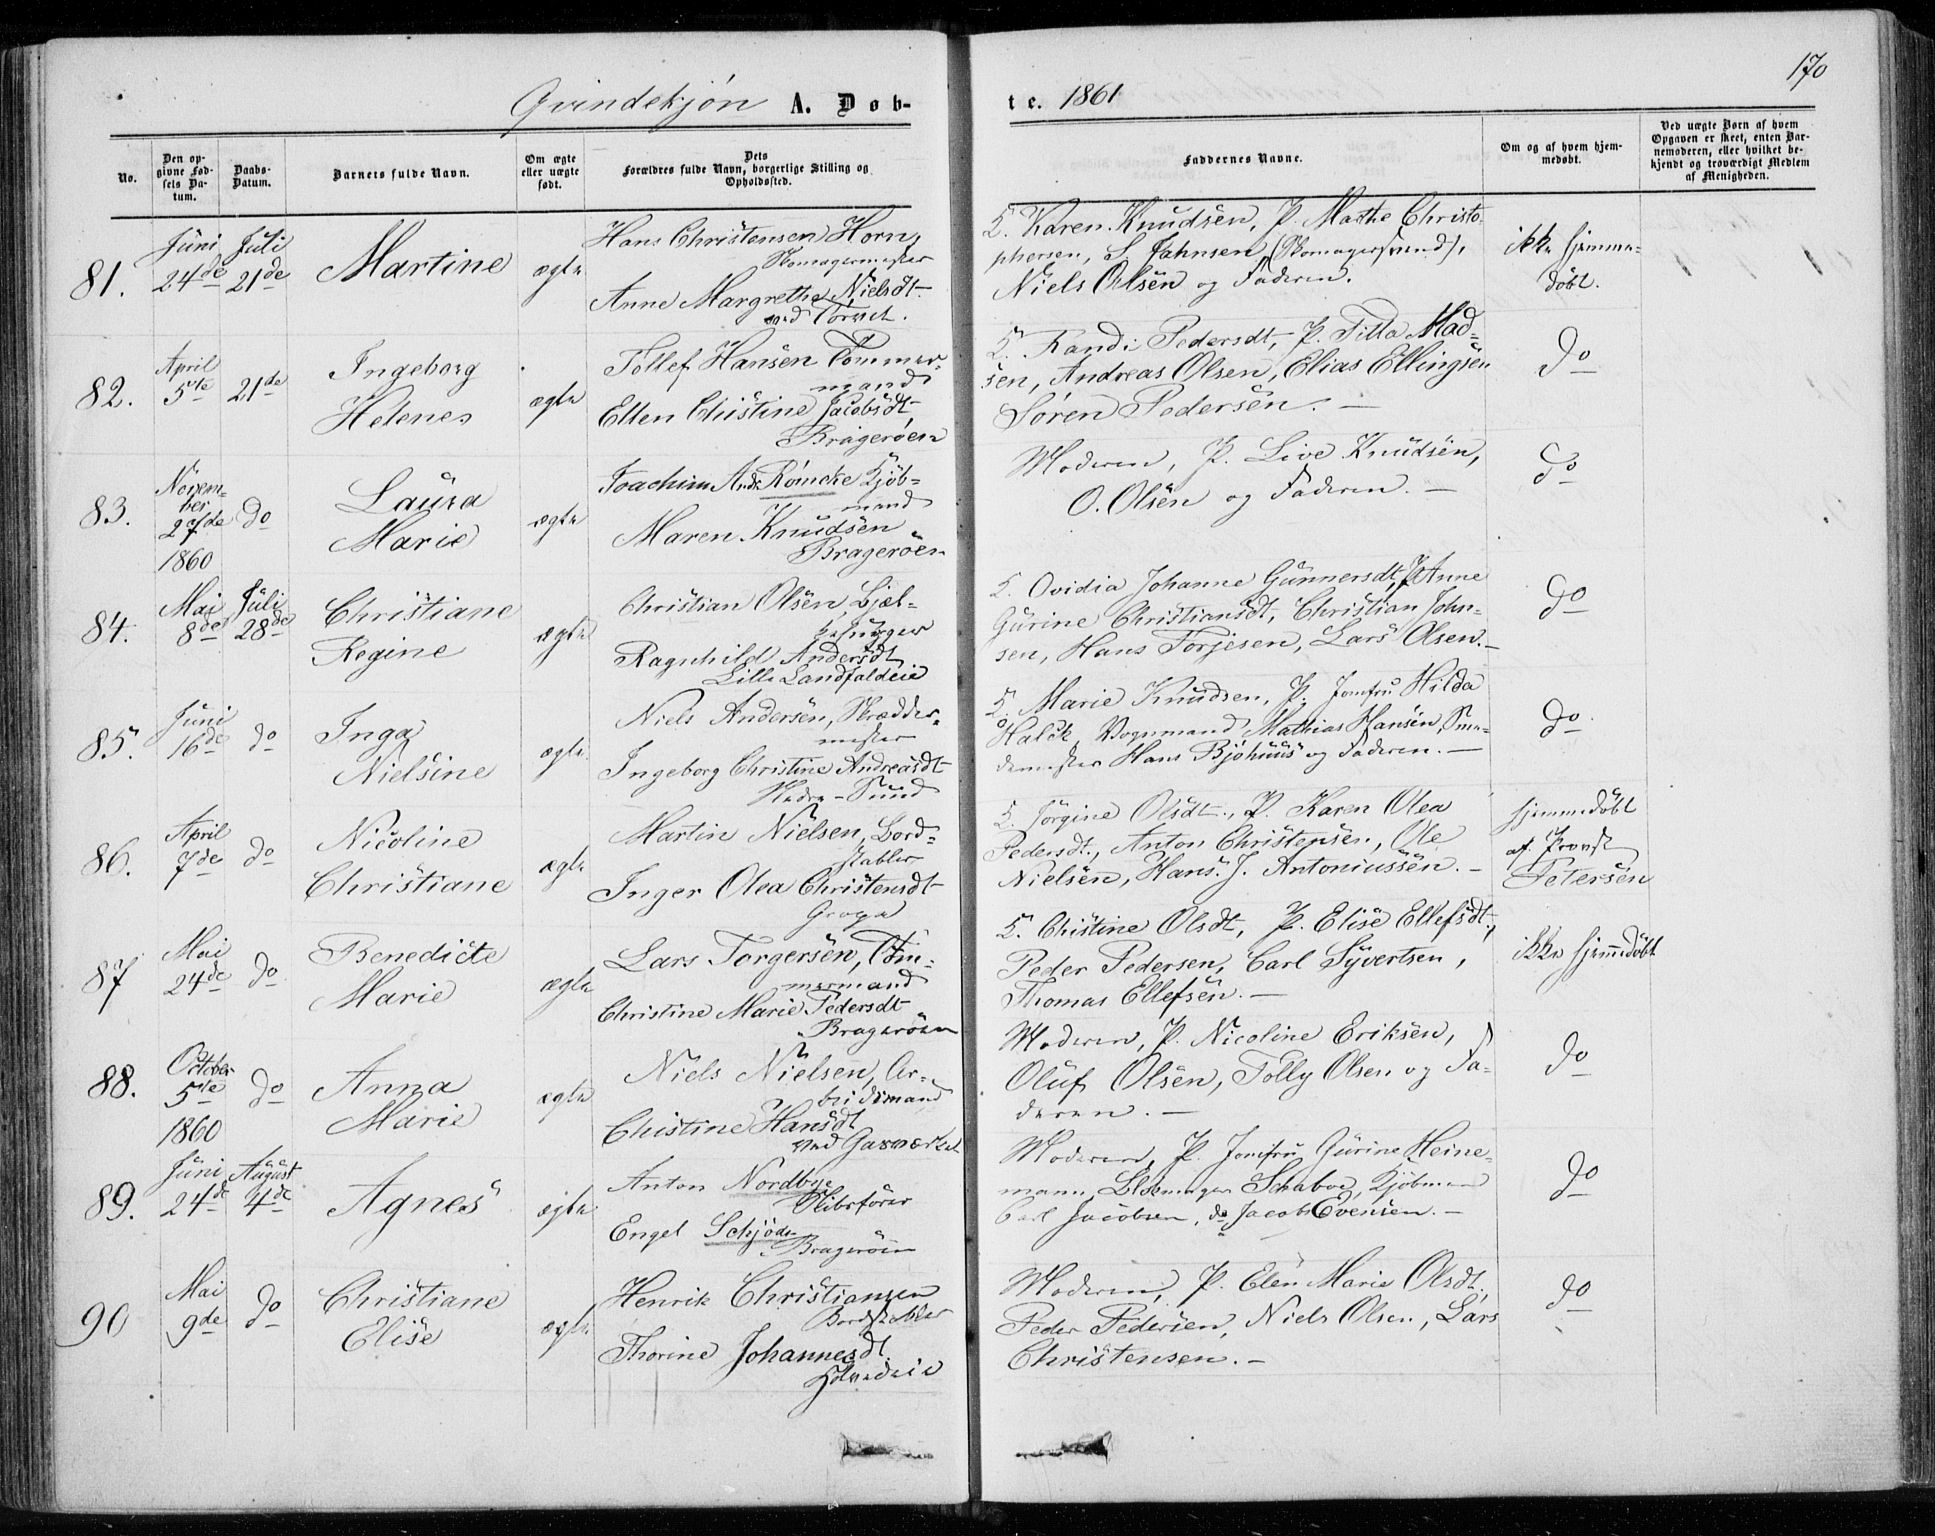 170
Qvindekjön A. Døb-
te. 1861
No.
Den op-
givne Fød-
sels Da-
tum.
Daabs-
Datum.
Barnets fulde Navn.
Om ægte
eller uægte
født.
Dets
Forældres fulde Navn, borgerlige Stilling og
Opholdssted.
Faddernes Navne.
Om og af hvem hjem-
medøbt.
Ved uægte Børn af hvem
Opgaven er skeet, enten Bar-
nemoderen, eller hvilket be-
kjendt og troværdigt Medlem
af Menigheden.
81.
Juni
24de
Juli
21de
Martine
ægte
Hans Christensen Horn,
Skomagermester
Anne Margrethe Nielsdt.
ved Torvet.
Karen Knudsen, P. Marthe Christo-
phersen, S. Jahnsen (Skomagersvend),
Niels Olsen og Faderen.
ikke hjemme-
døbt.
82.
April
5te
21de
Ingeborg
Helene
ægte
Tollef Hansen Tømmer-
mand
Ellen Christine Jacobsdt,
Bragerøen
Randi Pedersdt, P. Titta Mad-
sen, Andreas Olsen, Elias Ellingsen
Søren Pedersen. —
do
83.
Novem-
ber
27de
1860
do
Laura
Marie
ægte
Joachim Andr. Römcke Kjöb-
mand
Maren Knudsen
Bragerøen
Moderen, P. Live Knudsen,
O. Olsen og Faderen. —
do
84.
Mai
8de
Juli
28de
Christiane
Regine
ægte
Christian Olsen,
Ragnhild Andersdt
Lille Landfaldeie
Ovidia Johanne Gunnersdt, P. Anne
Gurine Christiansdt, Christian John-
sen, Hans Torjesen, Lars Olsen. —
do
85.
Juni
16de
do
Inga
Nielsine
ægte
Niels Andersen, Skrædder-
mester
Ingeborg Christine Andreasdt
Nedre-Sund
Marie Knudsen, P. Jomfru Hilda
Halck, Vognmand Mathias Hansen, Sme-
demester Hans Bjöhuus og Faderen. —
do
86.
April
7de
do
Nicoline
Christiane
ægte
Martin Nielsen, Bord-
stabler
Inger Olea Christensdt
Jörgine Olsdt., P. Karen Olea
Pedersdt., Anton Christensen, Ole
Nielsen, Hans. J. Antoniussen. —
hjemmedöbt
af Provst
Petersen
87
Mai
24de
do
Benedicte
Marie
ægte
Lars Torgersen, Töm-
mermand
Christine Marie Pedersdt
Bragerøen
Christine Olsdt, P. Elise Ellefsdt.,
Peder Pedersen, Carl Syvertsen,
Thomas Ellefsen. —
ikke hjemmedöbt
88.
October
5te
1860
do
Anna
Marie
ægte
Niels Nielsen, Ar-
beidsmand
Christine Hansdt
ved Gasværket
Moderen, P. Nicoline Eriksen,
Oluf Olsen, Tolly Olsen og Fa-
deren. —
do
89.
Juni
24de
August
4de
Agnes
ægte
Anton Nordbye
Skibsförer
Engel Schjöde
Bragerøen
Moderen, P. Jomfru Gurine Heine-
mann, Schaboe, Kjöbmand
Carl Jacobsen, do Jacob Evensen. —
do
90
Mai
9de
do
Christiane
Elise
ægte
Henrik Christiansen
Bordstabler
Thorine Johannesdt
Moderen, P. Elen Marie Olsdt,
Peder Pedersen, Niels Olsen, Lars
Christensen. —
do